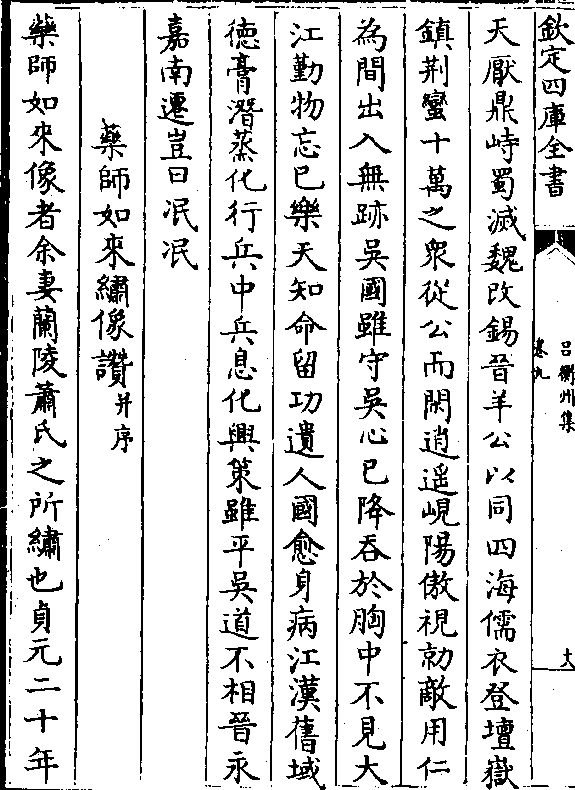 欽定四庫全書
呂衡州集
卷九
十八
天厭鼎峙蜀滅魏改錫晉羊公以同四海儒衣登壇嶽
鎮荆蠻十萬之衆從公而閑逍遥峴陽傲視勍敵用仁
為間出入無跡吳國雖守吳心已降吞於胸中不見大
江勤物忘已樂天知命留功遺人國愈身病江漢舊域
徳膏潛蒸化行兵中兵息化興策雖平吳道不相晉永
嘉南遷豈曰冺冺
藥師如來繡像讚并序
藥師如來像者余妻蘭陵蕭氏之所繡也貞元二十年